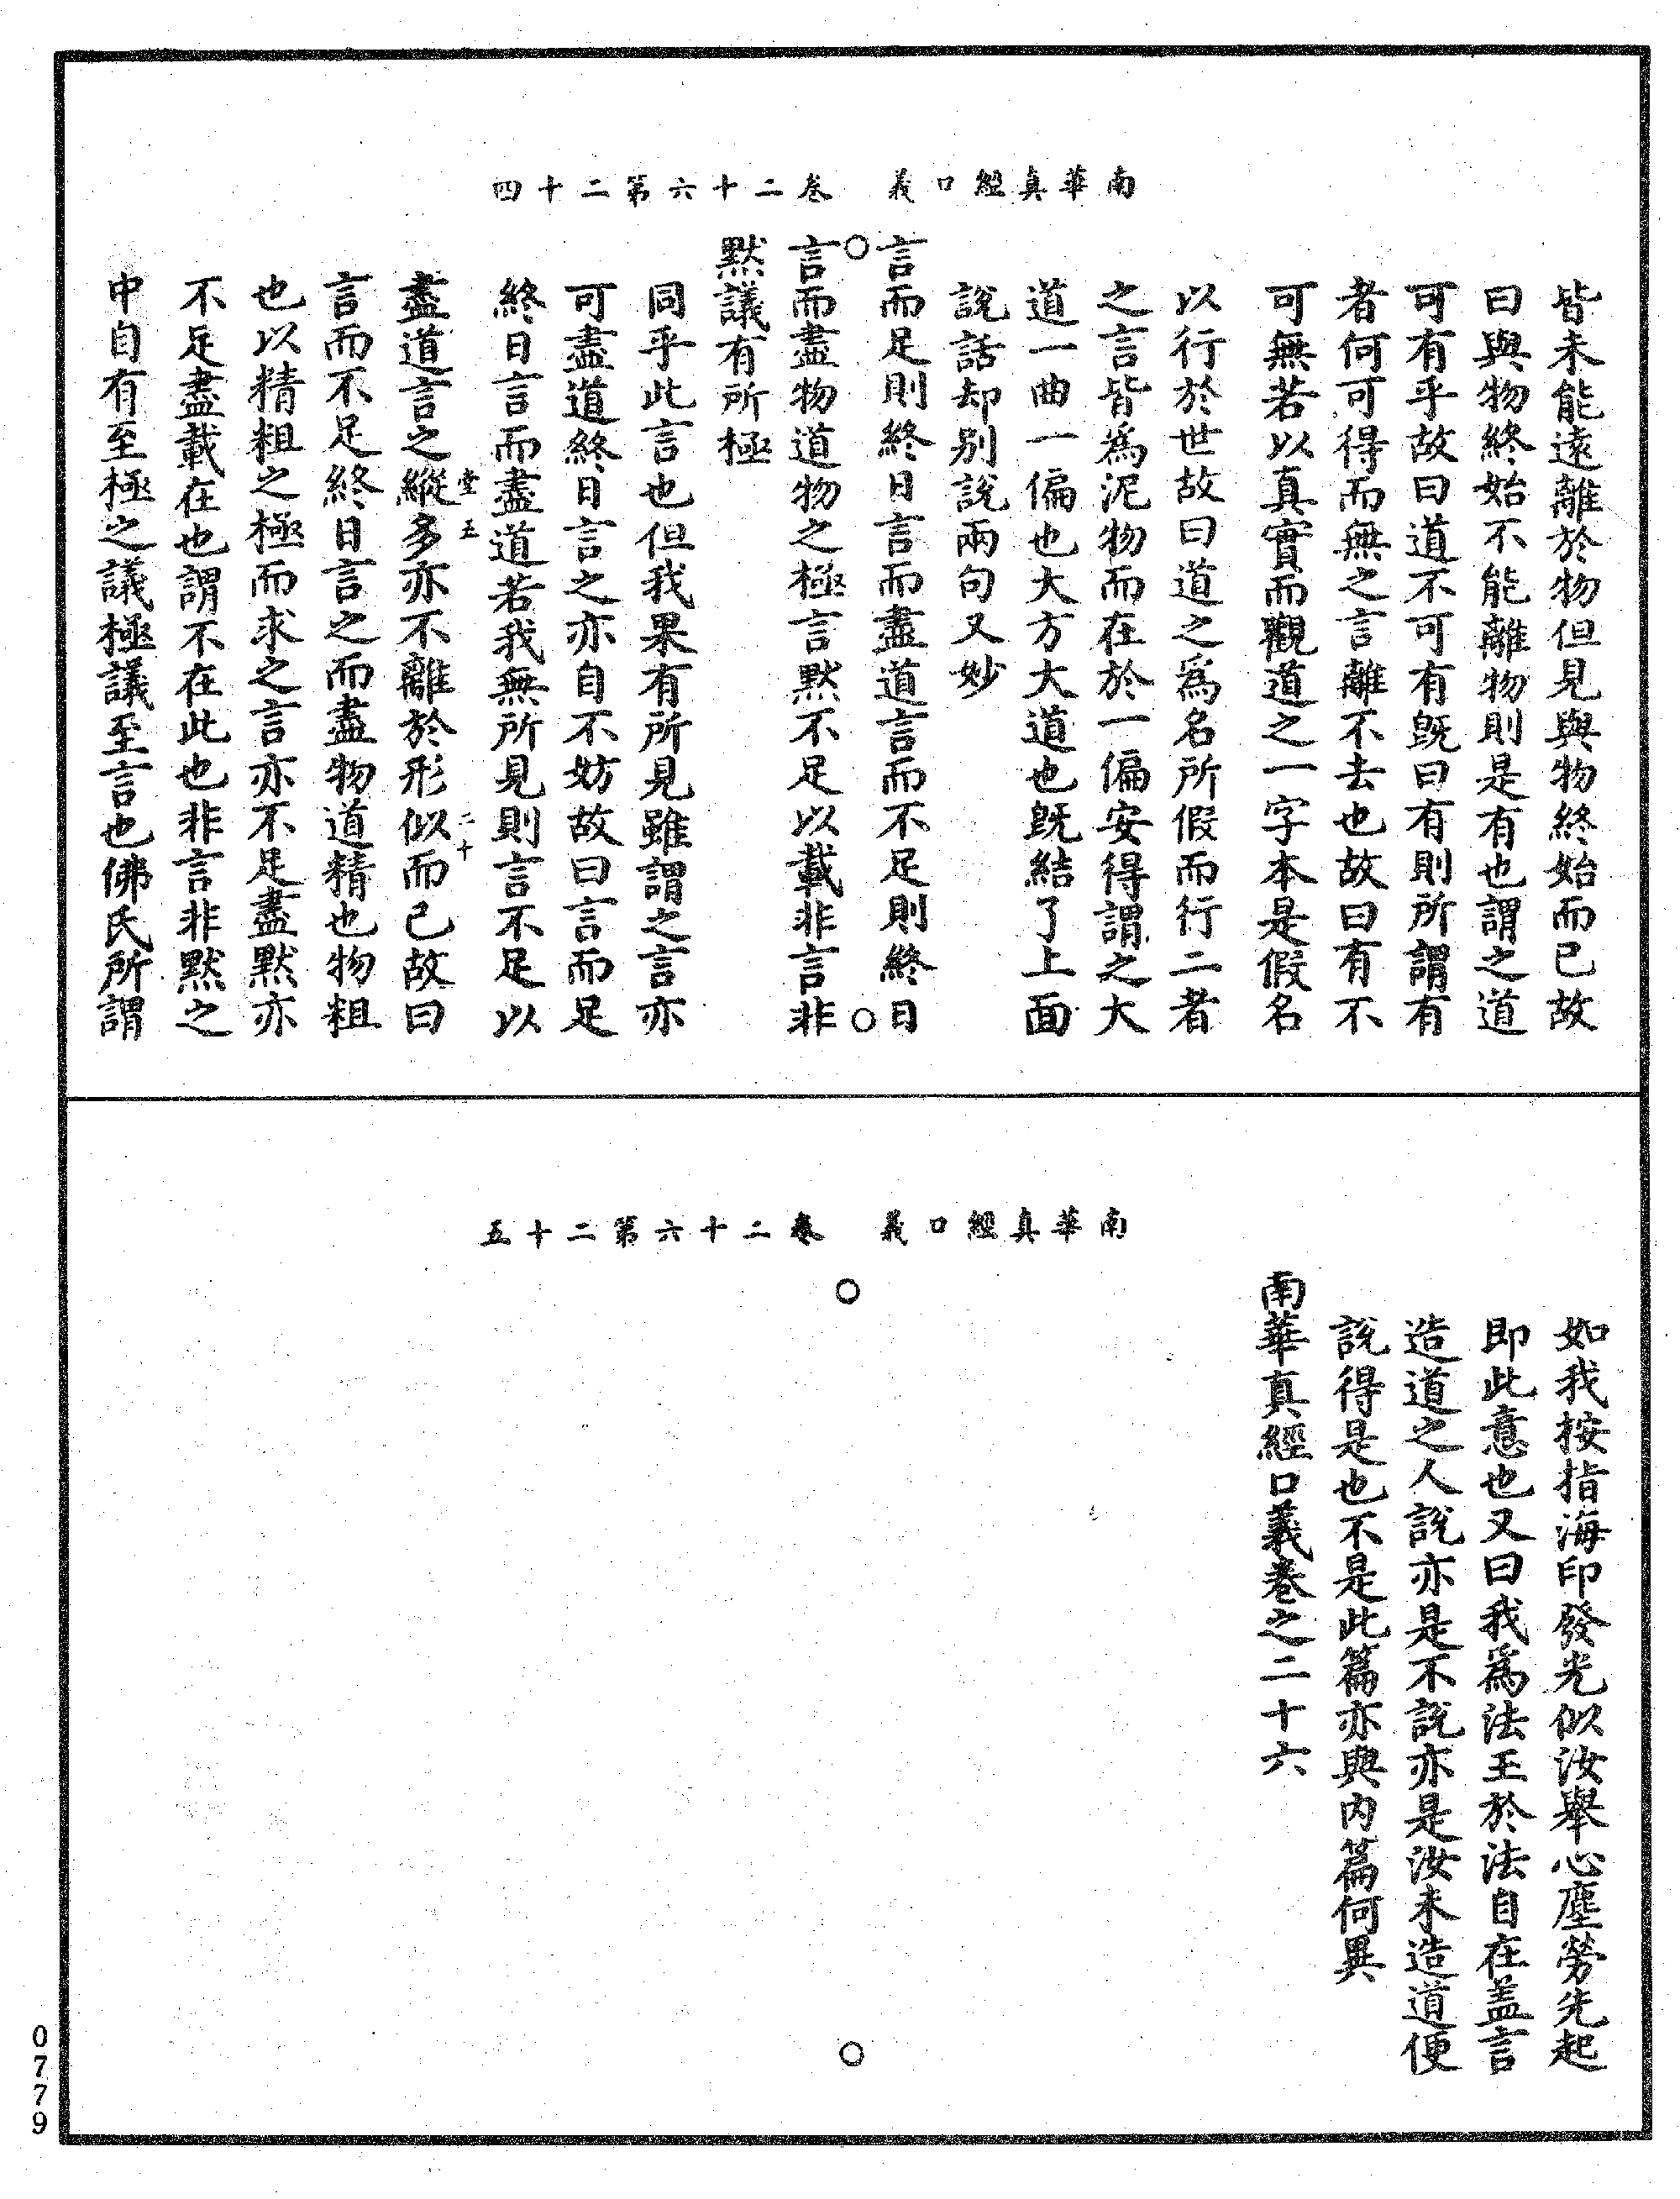 南華真經口義　卷二十六第二十四
皆未能遠離於物但見與物終始而已故
曰與物終始不能離物則是有也謂之道
可有乎故曰道不可有既曰有則所謂有
者何可得而無之言離不去也故曰有不
可無若以真實而觀道之一字本是假名
以行於世故曰道之為名所假而行二者
之言皆為泥物而在於一偏安得謂之大
道一曲一偏也大方大道也既結了上面
說話却別說兩句又妙
言而足則終日言而盡道言而不足則終日
言而盡物道物之極言默不足以載非言非
默議有所極
同乎此言也但我果有所見雖謂之言亦
可盡道終日言之亦自不妨故曰言而足
終日言而盡道若我無所見則言不足以
堂五　二十
盡道言之縱多亦不離於形似而已故曰
言而不足終日言之而盡物道精也物粗
也以精粗之極而求之言亦不足盡默亦
不足盡載在也謂不在此也非言非默之
中自有至極之議極議至言也佛氏所謂
南華真經口義　卷二十六第二十五
如我按指海印發光似汝舉心塵勞先起
即此意也又曰我為法王於法自在蓋言
造道之人說亦是不說亦是汝未造道便
說得是也不是此篇亦與內篇何異
南華真經口義卷之二十六
0779